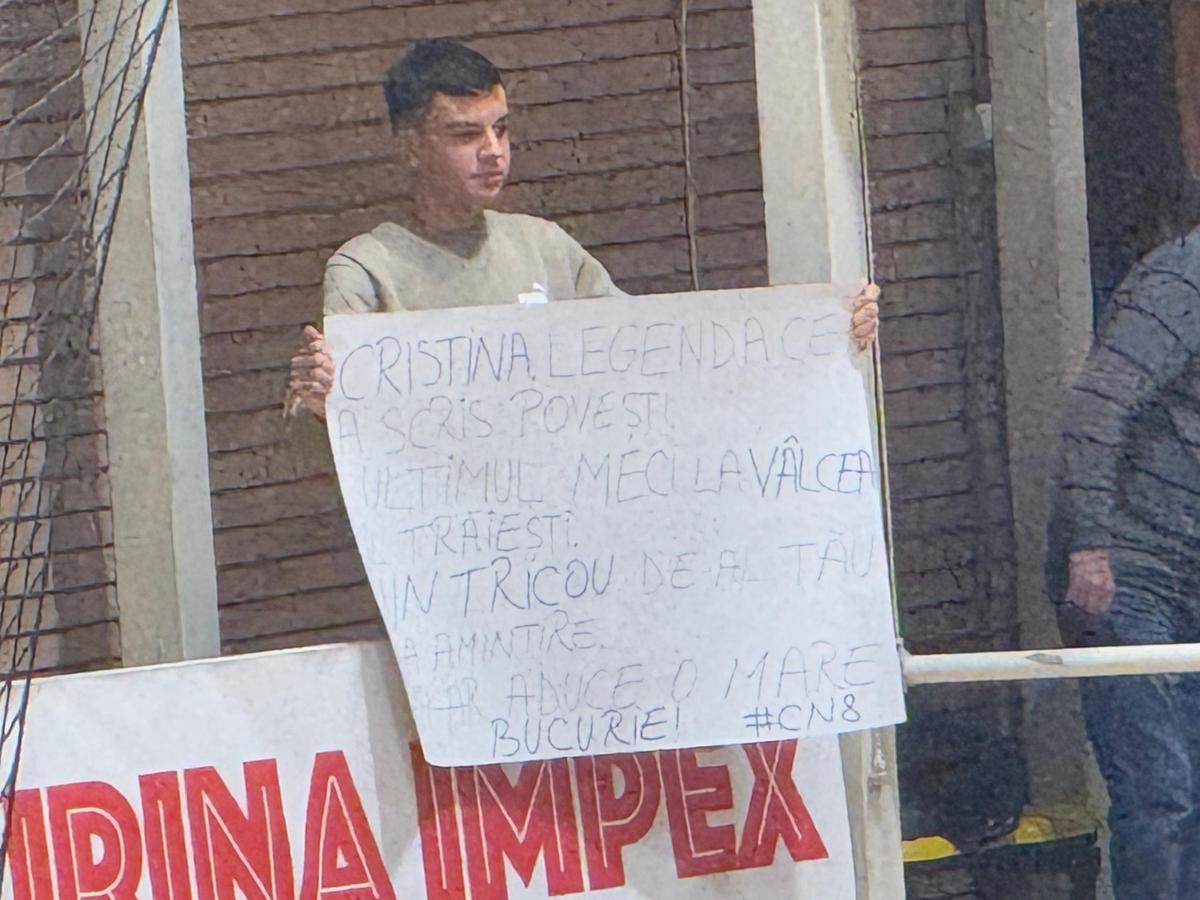 CRISTINA, LEGENDA CE
A SCRIS POVEȘTI
ULTIMUL MECI LA VÂLCEA
TRĂIEȘTI.
UN TRICOU DE-AL TĂU
CA AMINTIRE
MI-AR ADUCE O MARE
BUCURIE! #CN8
IRINA IMPEX